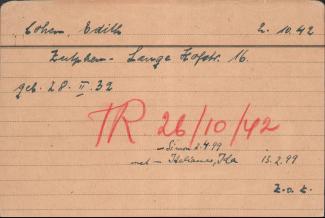 Cohen, Edith 2. 10. 42
Zutphen - Lange Hofstr. 16.
geb. 28. II. 32
TR 26/10/42
- Simon 2.4.99
met - Ida 15.2.99
Z.o.Z.